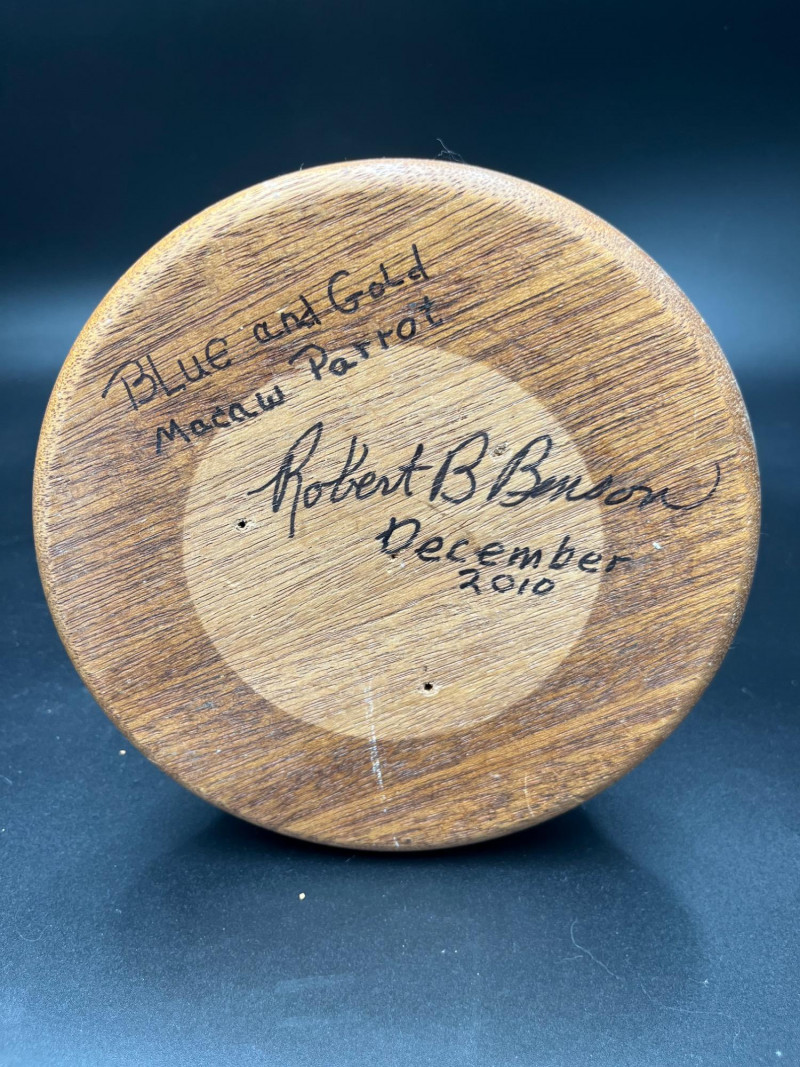 Blue and Gold
Macaw Parrot
Robert B Benson
December
2010